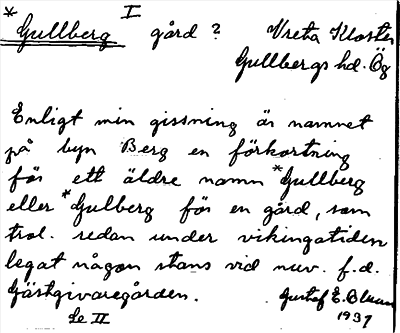 I
*Gullberg gård? Vreta Kloster
Gullbergs hd. Ög
Enligt min gissning är namnet
på byn Berg en förkortning
för ett äldre namn *Gullberg
eller *Gulberg för en gård, som
trol. redan under vikingatiden
legat någon stans vid nuv. f.d.
Gästgivaregården. Gustaf E. Bluum
Se II 1937